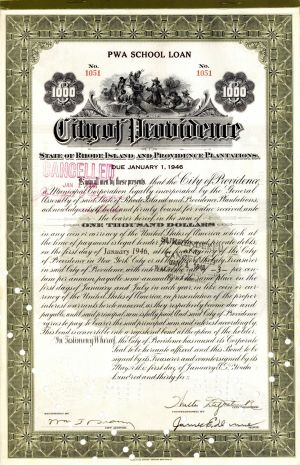 PWA SCHOOL LOAN
No. 1051
No. 1051
1000
1000
City of Providence
IN THE
STATE OF RHODE ISLAND AND PROVIDENCE PLANTATIONS.
DUE JANUARY 1, 1946
CANCELLED
JAN
Know all men by these presents, that the City of Providence,
a Municipal Corporation legally incorporated by the General
Assembly of said State of Rhode Island and Providence Plantations,
acknowledges itself indebted and firmly bound for value received unto
the bearer hereof in the sum of
ONE THOUSAND DOLLARS
in any coin or currency of the United States of America which at
the time of payment is legal tender for public and private debts,
on the first day of January 1946,
of Providence in New York City or at the office of the City Treasurer
in said City of Providence with interest at the rate of 3 per
centum per annum, payable semi-annually on the
first day of January and July in each year, in like coin or cur-
rency of the United States of America, on presentation of the proper
interest warrants hereto annexed, as they respectively become due and
payable, until said principal sum is fully paid. And said City of Providence
agrees to pay to bearer the said principal sum and interest accordingly.
This bond is convertible into a registered bond at the option of the holder.
In Testimony Whereof, the City of Providence has caused its Corporate
Seal to be hereunto affixed and this Bond to be
signed by its Treasurer and countersigned by its
Mayor the first day of January A.D. Nineteen
hundred and thirty-six.
CITY TREASURER
COUNTERSIGNED
MAYOR